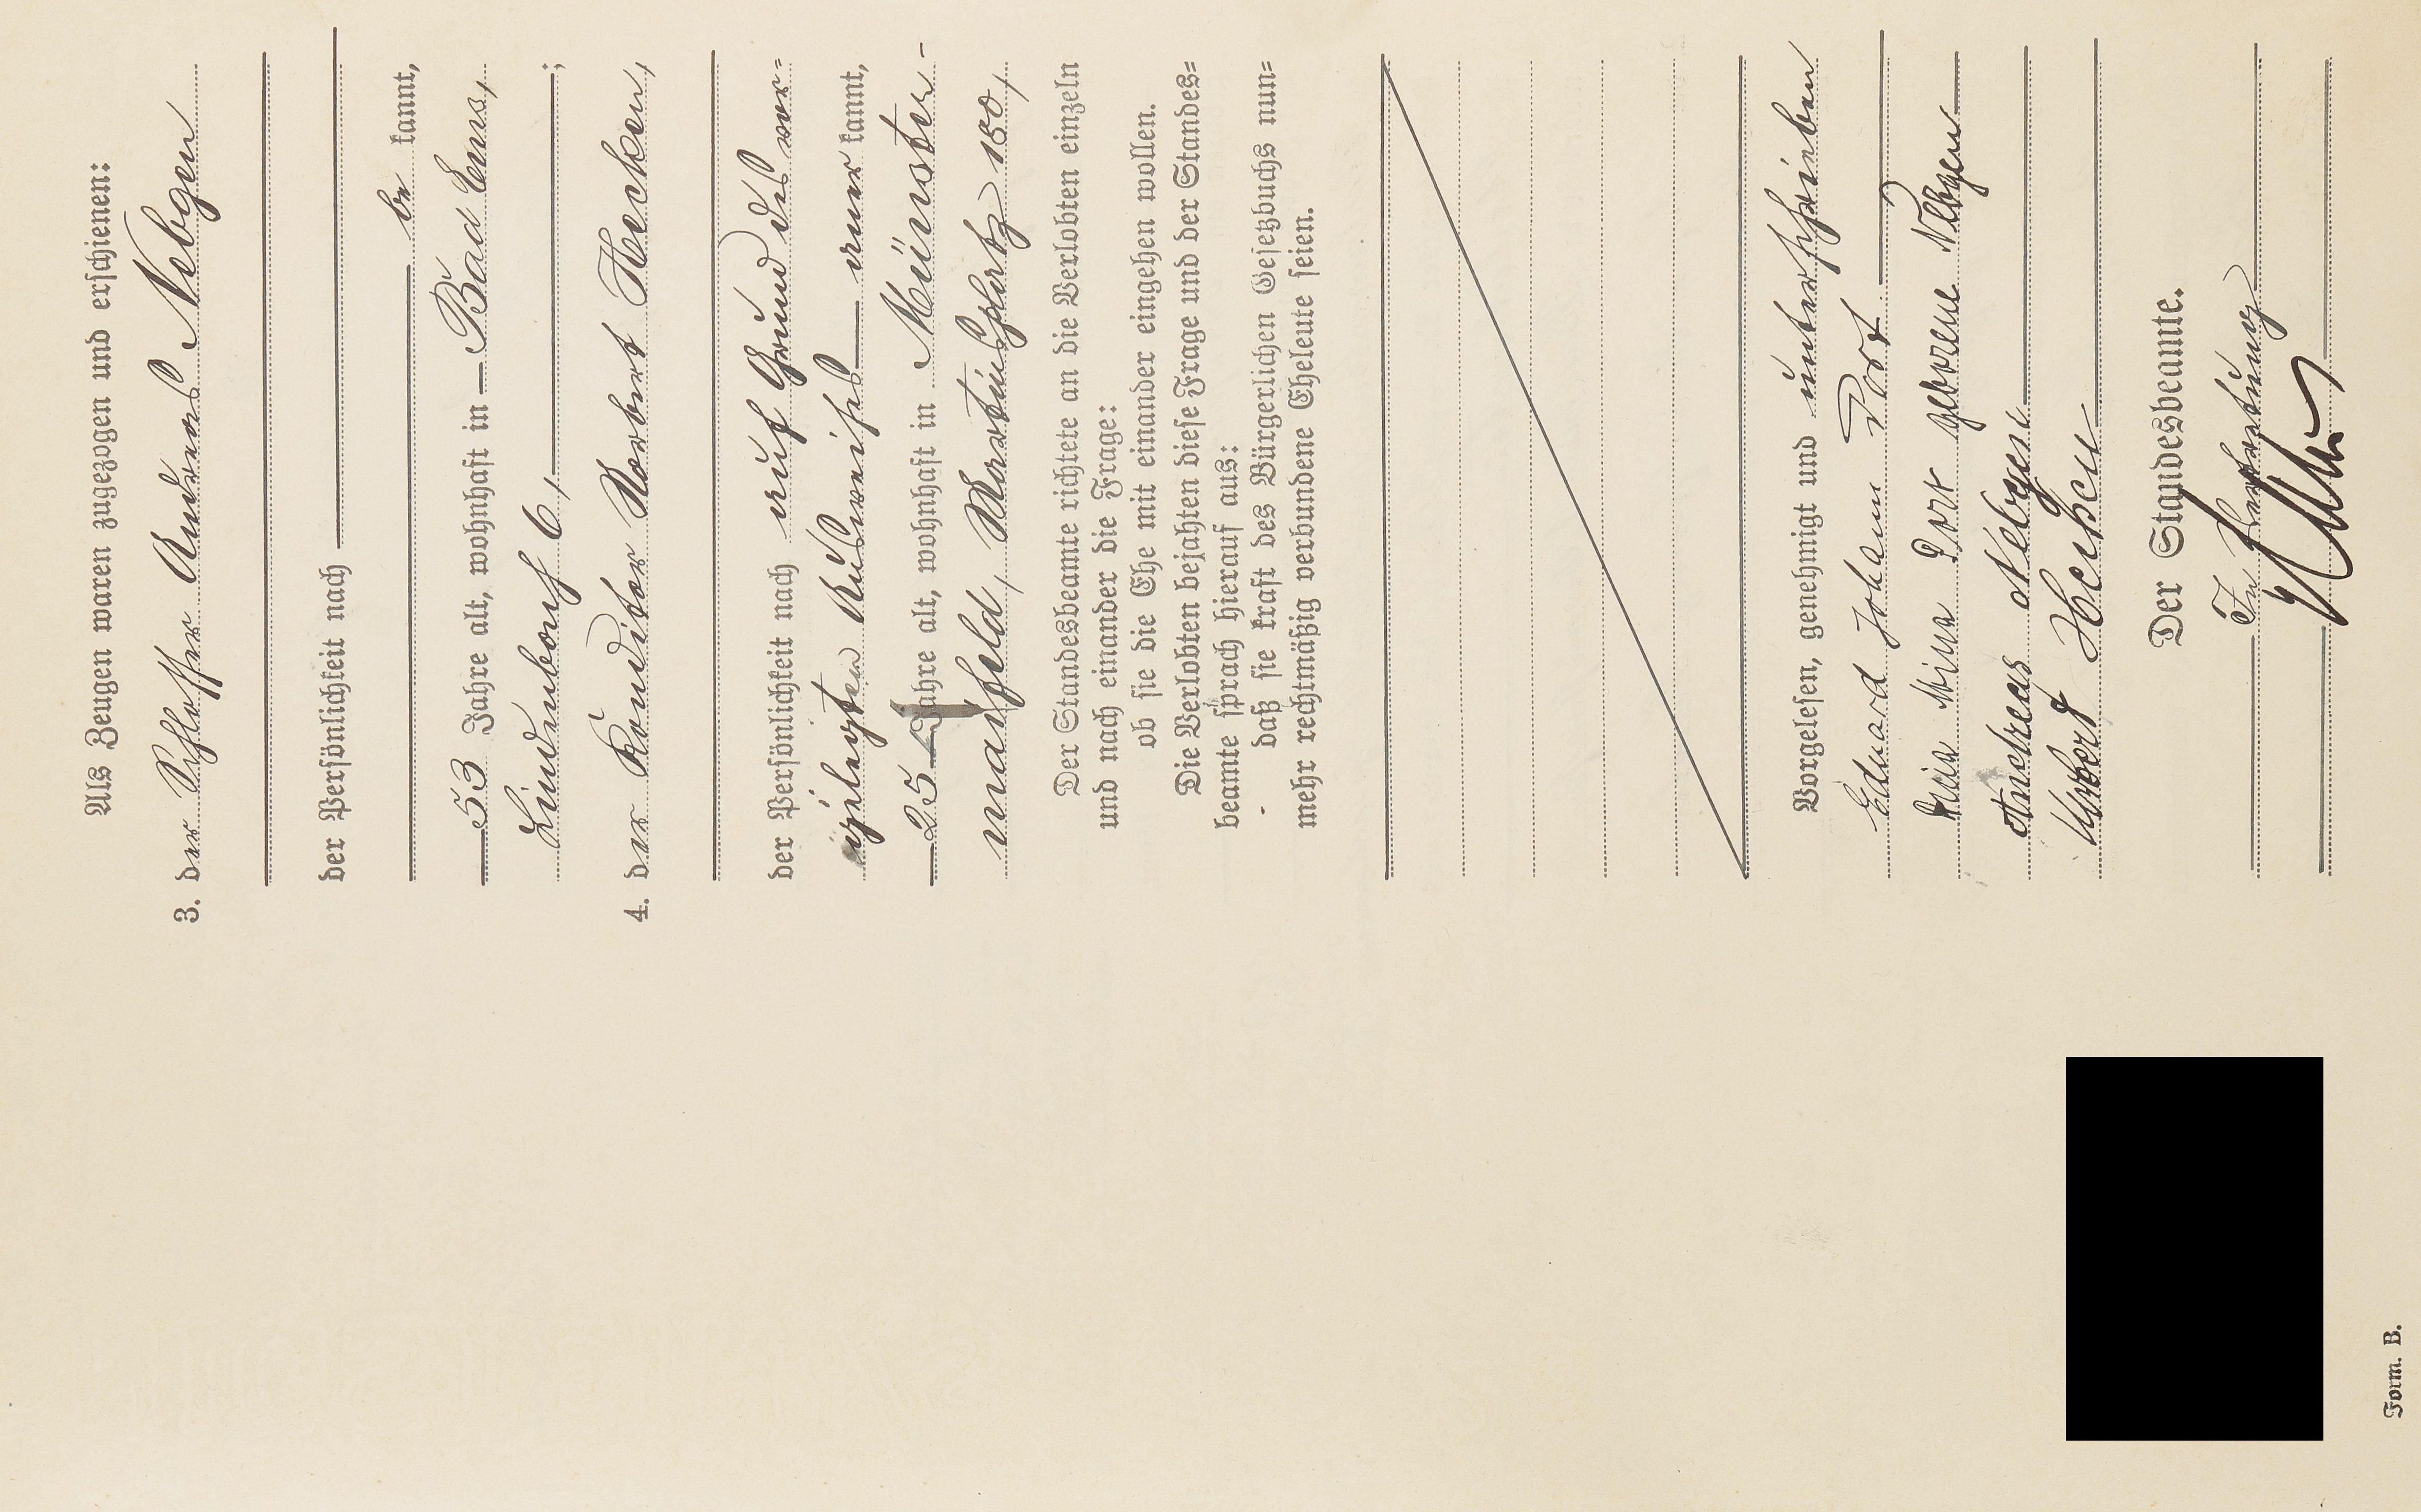 Als Zeugen waren zugezogen und erschienen:
3. der Schlosser Andreas Nebgen
der Persönlichkeit nach
be kannt,
53 Jahre alt, wohnhaft in Bad Ems,
Lindenbach 6,
;
4. der Konditor Norbert Hecken,
der Persönlichkeit nach auf Grund des vor=
gelegten Ausweises aner kannt,
25 Jahre alt, wohnhaft in Münster-
maifeld, Martinsplatz 150,
Der Standesbeamte richtete an die Verlobten einzeln
und nach einander die Frage:
ob sie die Ehe mit einander eingehen wollen.
Die Verlobten bejahten diese Frage und der Standes=
beamte sprach hierauf aus:
daß sie kraft des Bürgerlichen Gesetzbuchs nun=
mehr rechtmäßig verbundene Eheleute seien.
Vorgelesen, genehmigt und unterschrieben
Eduard Johann Port
Mina Port geborene Nebgen
Andreas Nebgen
Norbert Hecken
Der Standesbeamte.
In Vertretung
Form. B.